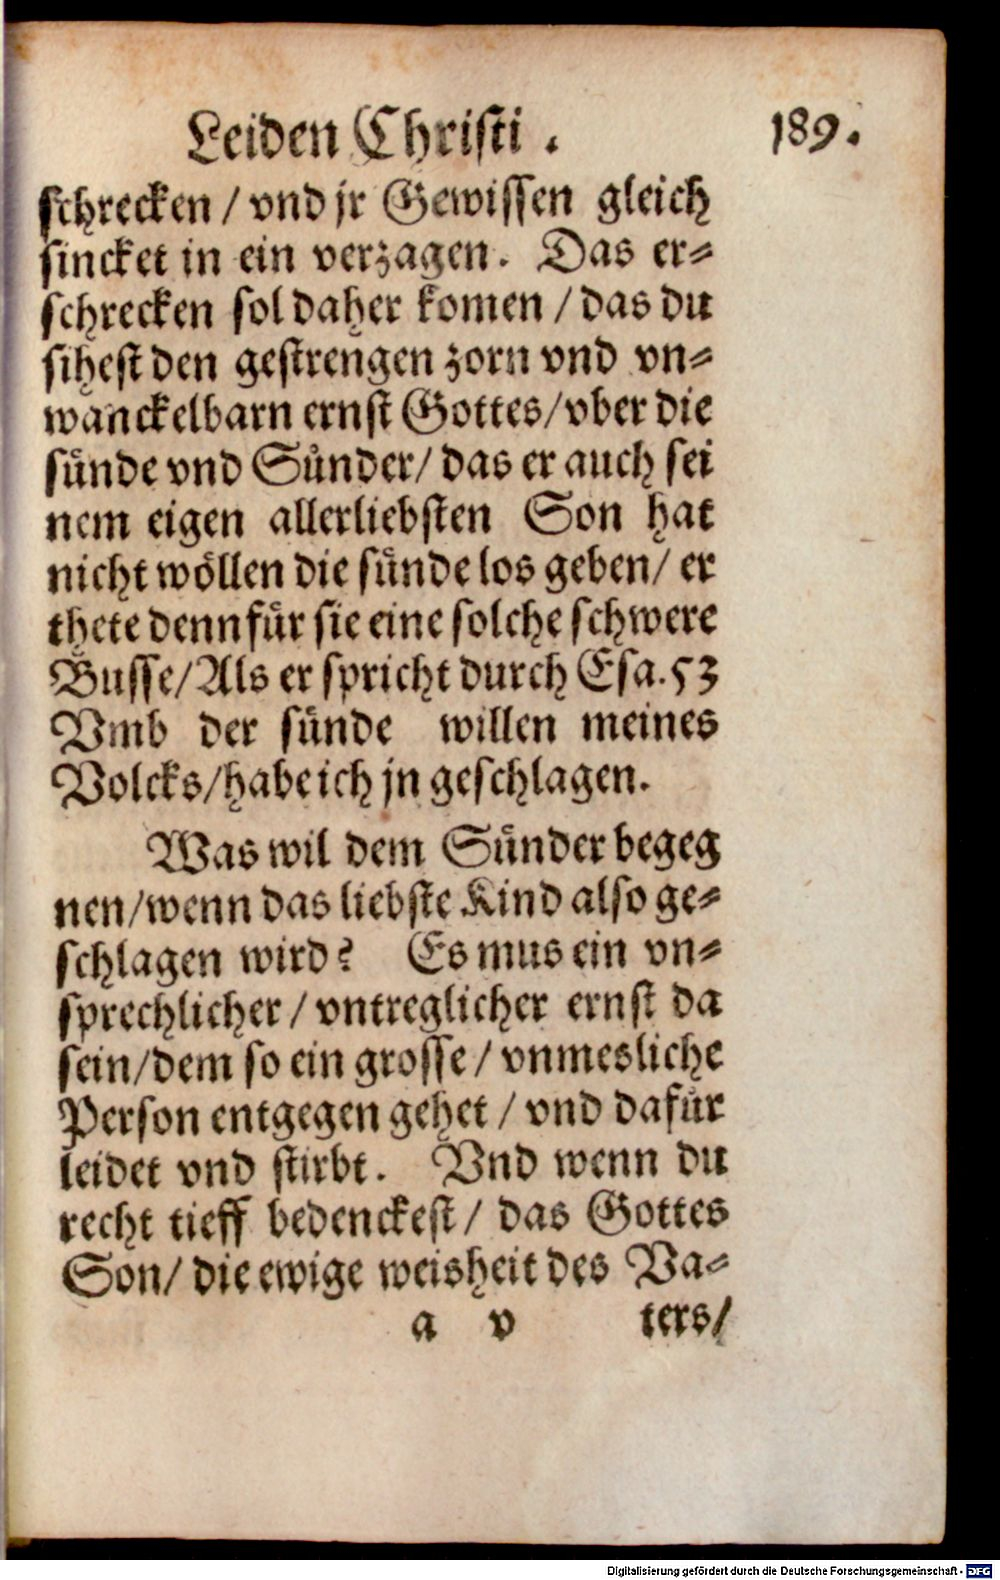 Leiden Christi. 189.
schrecken / vnd jr Gewissen gleich
sincket in ein verzagen. Das er-
schrecken sol daher komen / das du
sihest den gestrengen zorn vnd vn-
wanckelbarn ernst Gottes / vber die
sünde vnd Sünder / das er auch sei
nem eigen allerliebsten Son hat
nicht wöllen die sünde los geben / er
thete denn für sie eine solche schwere
Busse / Als er spricht durch Esa. 53
Vmb der sünde willen meines
Volcks / habe ich jn geschlagen.
Was wil dem Sünder begeg
nen / wenn das liebste Kind also ge-
schlagen wird? Es mus ein vn-
sprechlicher / vntreglicher ernst da
sein / dem so ein grosse / vnmesliche
Person entgegen gehet / vnd dafür
leidet vnd stirbt. Vnd wenn du
recht tieff bedenckest / das Gottes
Son / die ewige weisheit des Va-
a v ters /
Digitalisierung gefördert durch die Deutsche Forschungsgemeinschaft - DFG